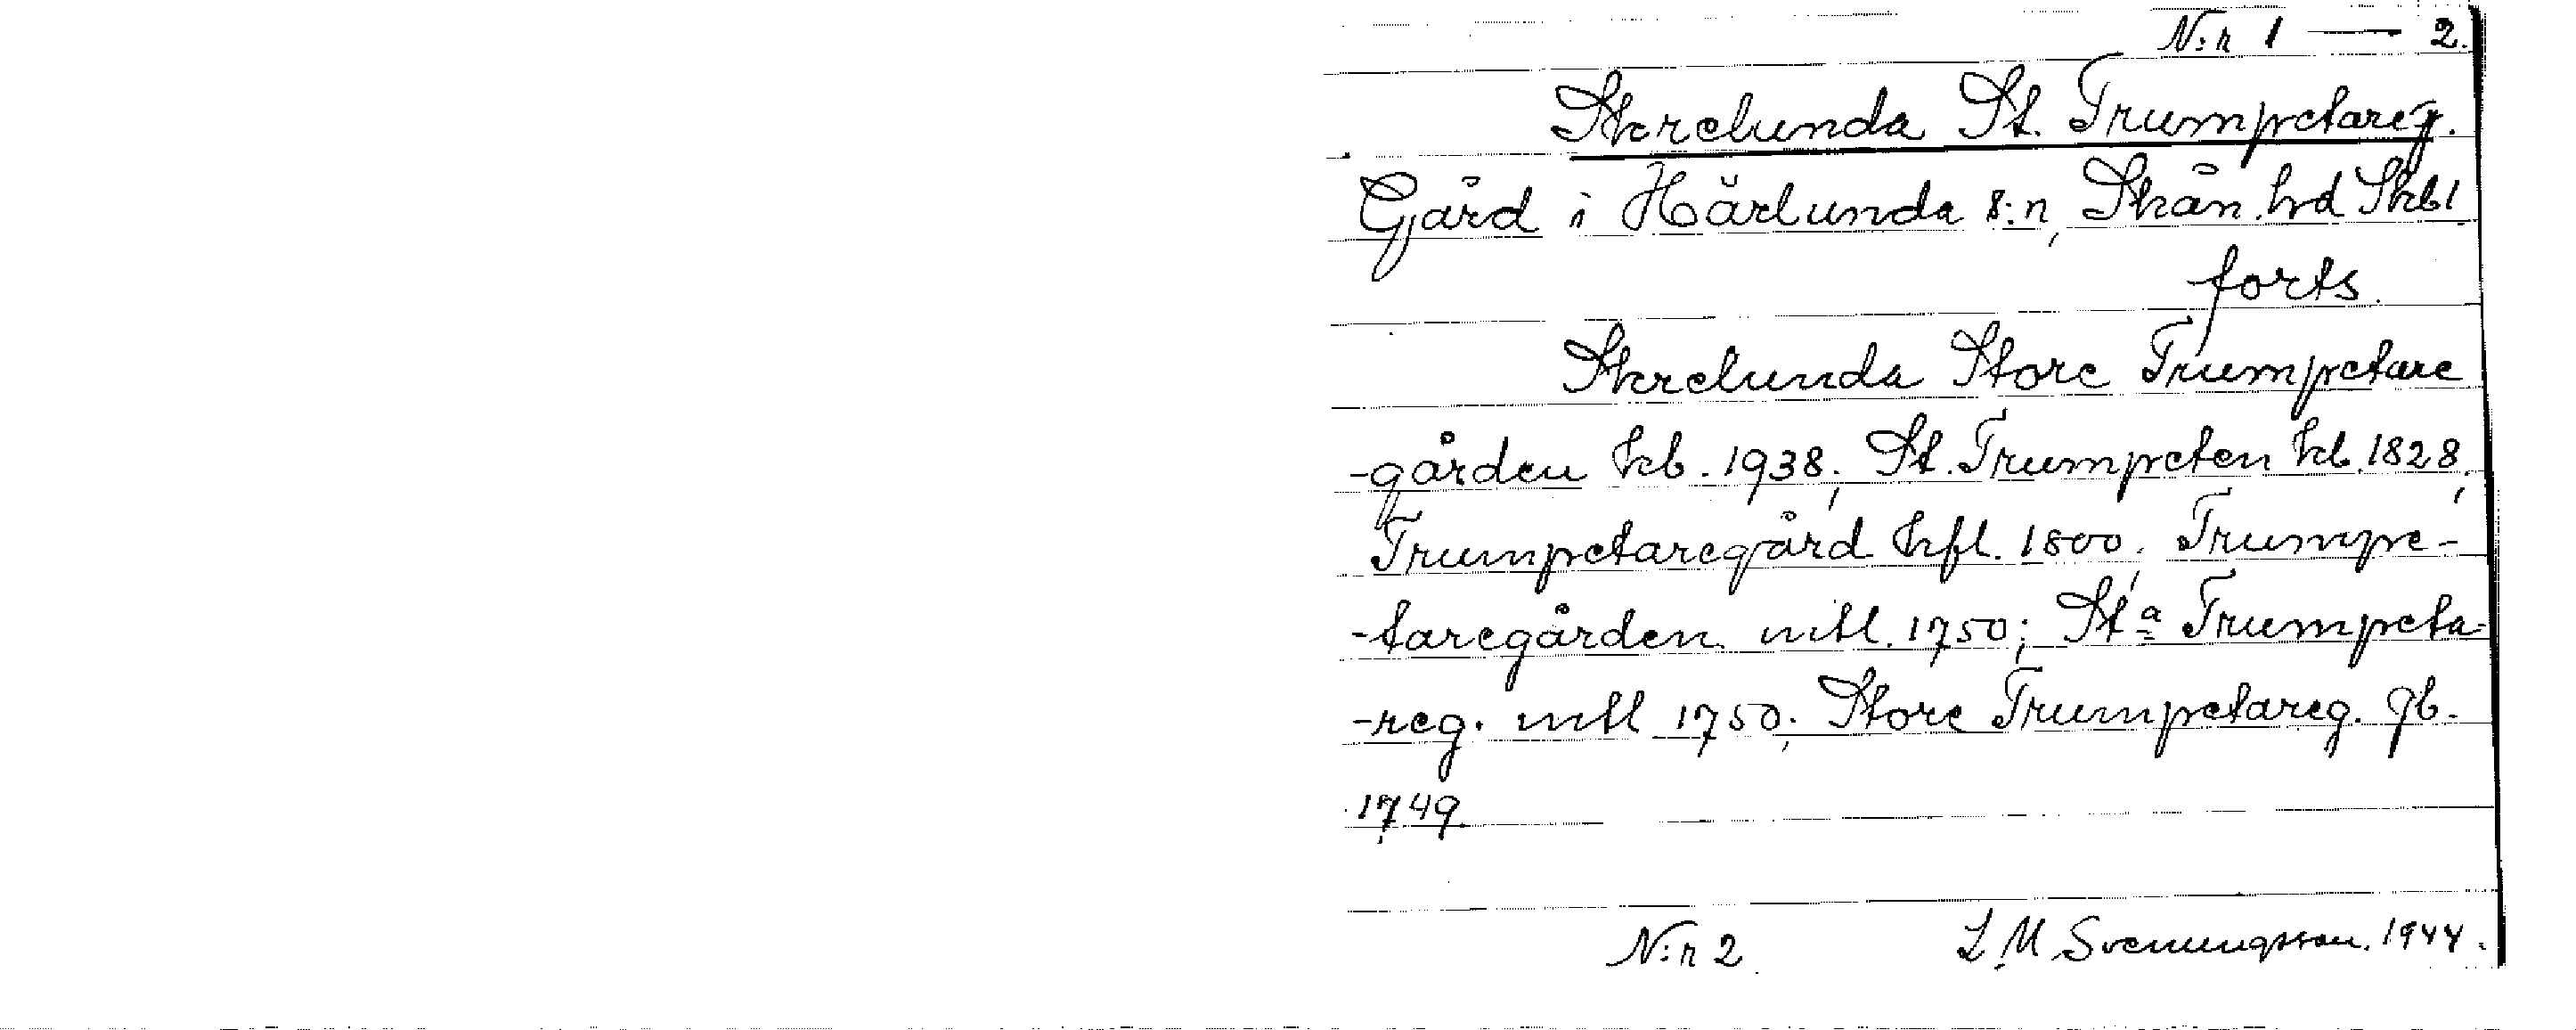 N:r 1 — 2.
Skrelunda St. Trumpetareg.
Gård i Härlunda s:n, Skån. hd Skbl
forts.
Skrelunda Store Trumpetare
-gården kb. 1938; St. Trumpeten kb. 1828;
Trumpetaregård hfl. 1800; Trumpe-
-taregården mtl. 1750; St.a Trumpeta-
-reg. mtl 1750; Store Trumpetareg. gb.
1749.
N:r 2. L. M. Svenungsson. 1944.